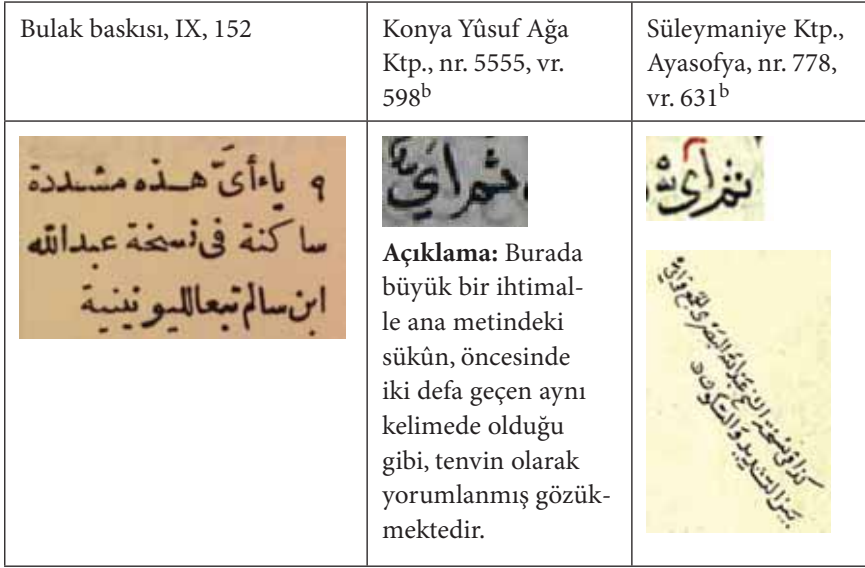 Bulak baskısı, IX, 152
Konya Yûsuf Ağa
Ktp., nr. 5555, vr.
598ᵇ
Süleymaniye Ktp.,
Ayasofya, nr. 778,
vr. 631ᵇ
٩ ياء أىّ هـذه مشددة
ساكنة فى نسخة عبدالله
ابن سالم تبعا لليونينية
ثم اي
Açıklama: Burada
büyük bir ihtimal-
le ana metindeki
sükûn, öncesinde
iki defa geçen aynı
kelimede olduğu
gibi, tenvin olarak
yorumlanmış gözük-
mektedir.
ثم أى
كذا فى نسخة الشيخ عبد الله البصرى
بين التشديد والسكون